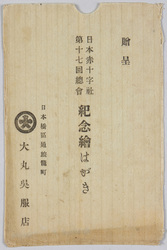 贈呈
日本赤十字社
第十七回總會
紀念繪はがき
日本橋區旅籠町
大丸呉服店